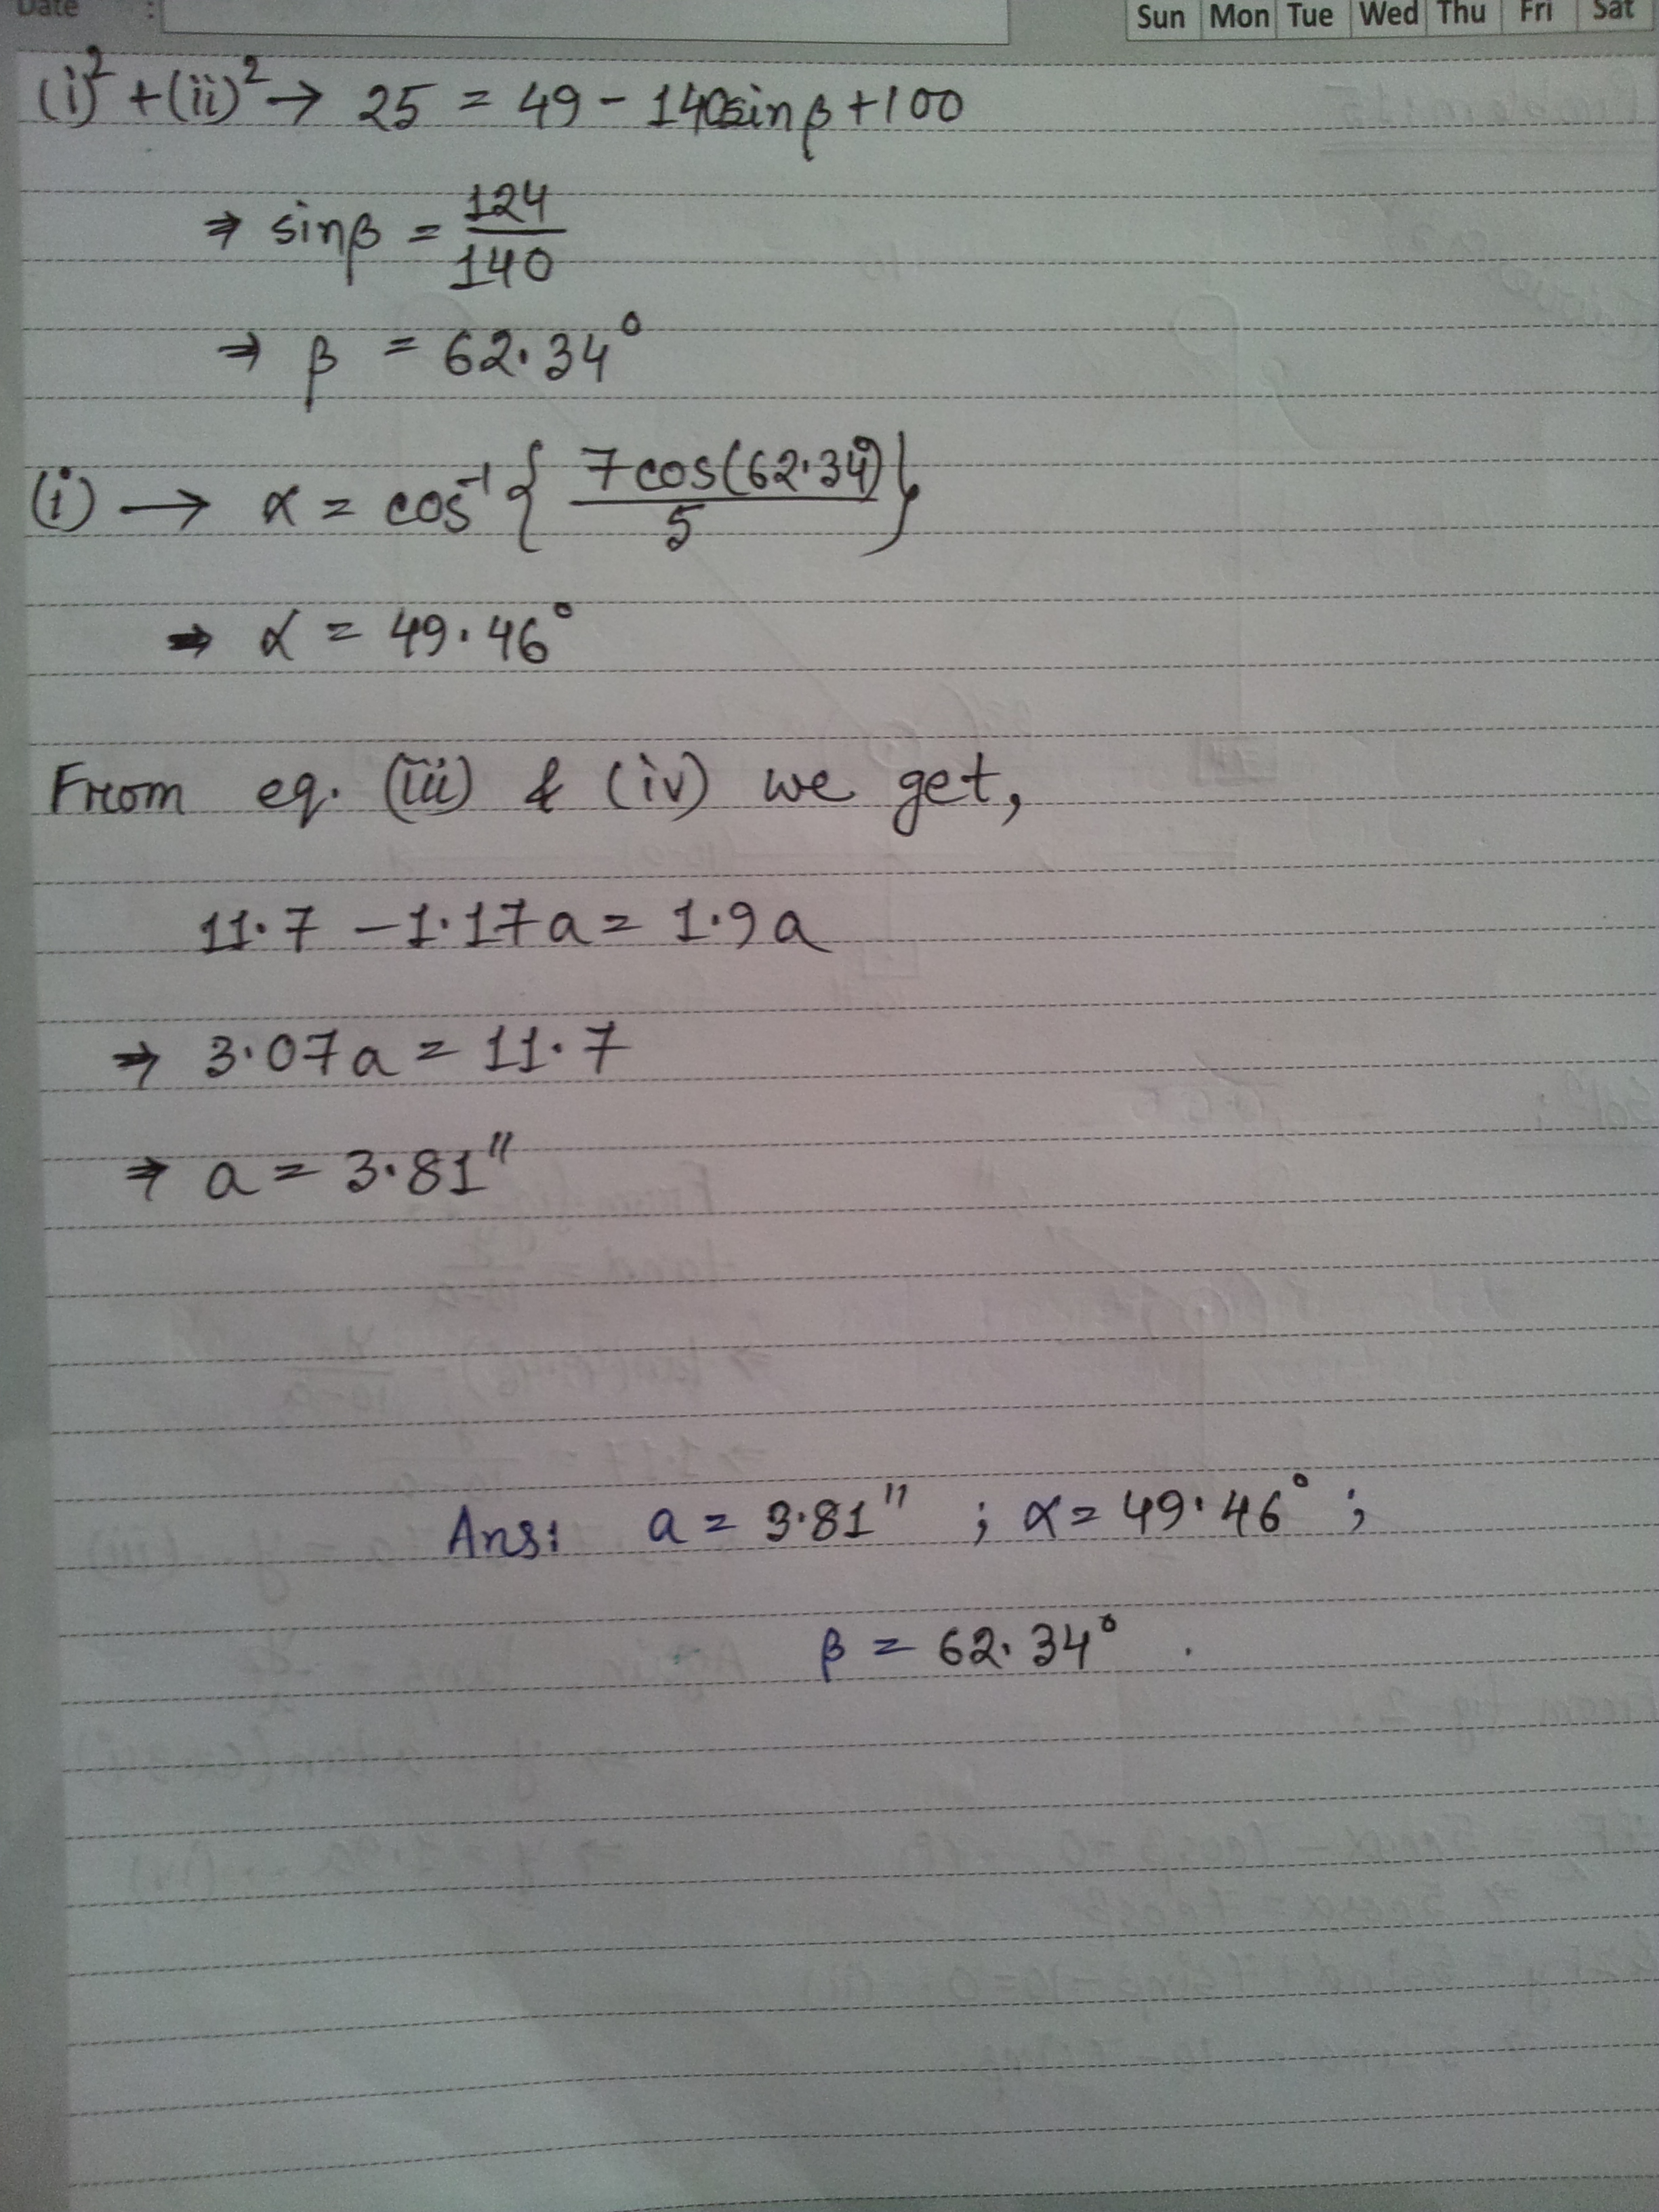 Date :
Sun Mon Tue Wed Thu Fri Sat
(i)² + (ii)² → 25 = 49 - 140sinβ + 100
⇒ sinβ = 124/140
⇒ β = 62.34°
(i) → α = cos⁻¹ { 7cos(62.34°)/5 }
⇒ α = 49.46°
From eq. (iii) & (iv) we get,
11.7 - 1.17a = 1.9a
⇒ 3.07a = 11.7
⇒ a = 3.81"
Ans: a = 3.81" ; α = 49.46° ;
β = 62.34° .